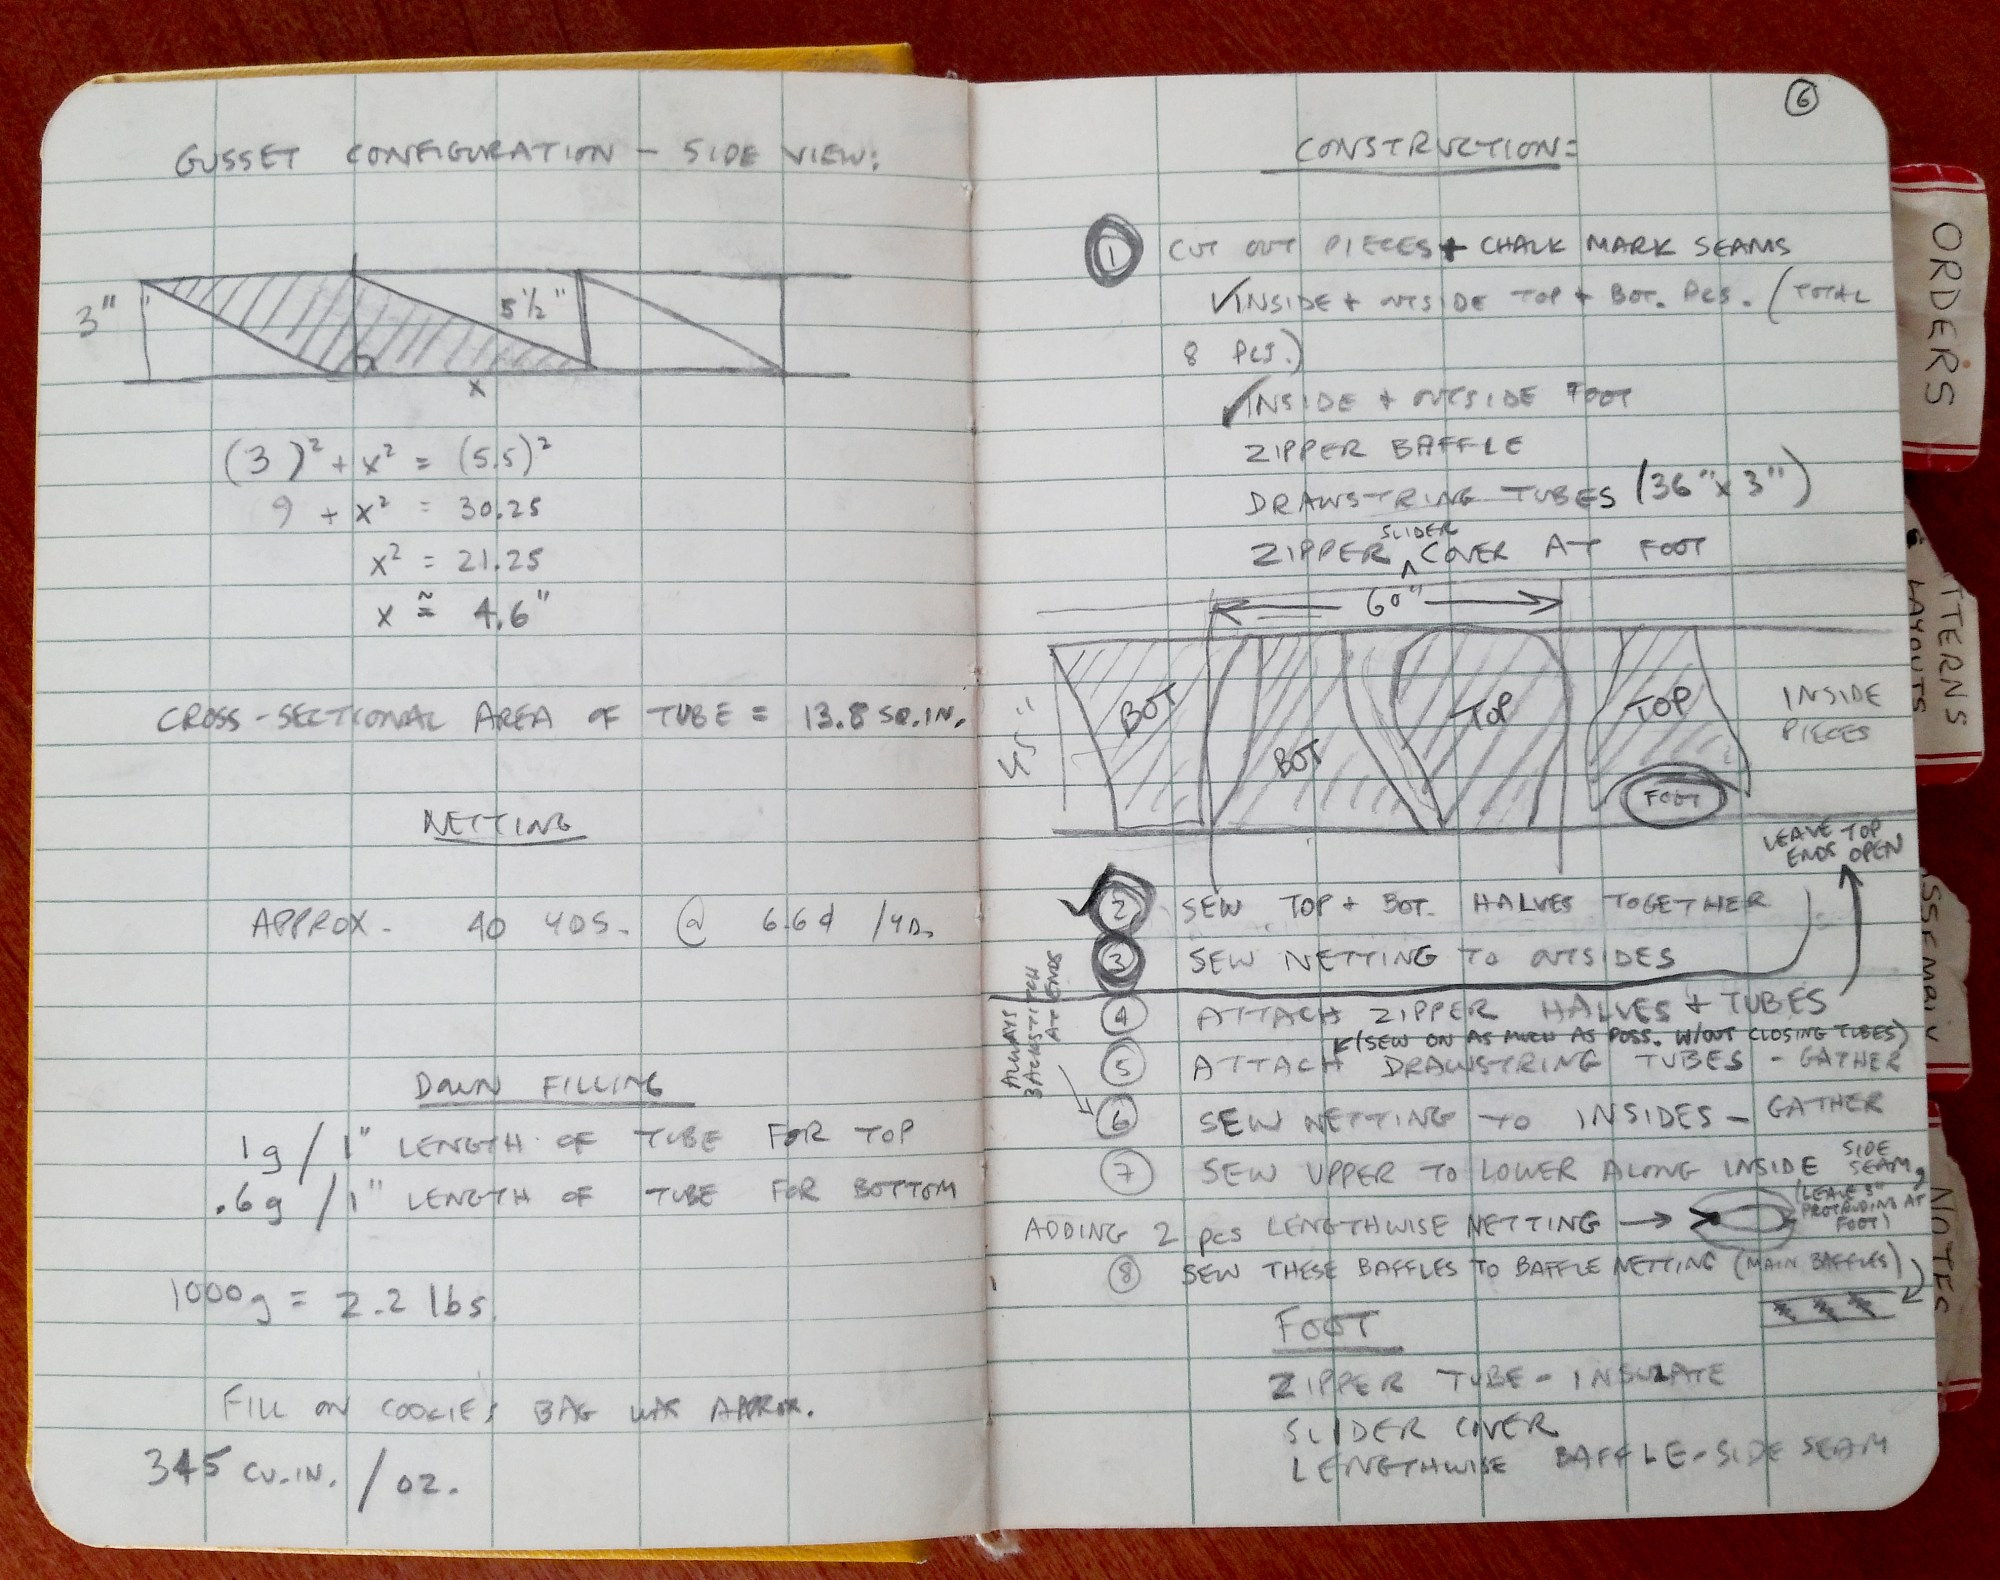 GUSSET CONFIGURATION – SIDE VIEW:
3"
5 1/2"
x
(3)² + x² = (5.5)²
9 + x² = 30.25
x² = 21.25
x ≅ 4.6"
CROSS-SECTIONAL AREA OF TUBE = 13.8 SQ.IN.
NETTING
APPROX. 40 YDS. @ 6.6¢ /YD.
DOWN FILLING
1g / 1" LENGTH OF TUBE FOR TOP
.6g / 1" LENGTH OF TUBE FOR BOTTOM
1000g = 2.2 lbs.
FILL ON COOKIE'S BAG WAS APPROX.
345 CU.IN. / OZ.
6
CONSTRUCTION:
1 CUT OUT PIECES + CHALK MARK SEAMS
✓INSIDE + OUTSIDE TOP + BOT. PCS. (TOTAL
8 PCS.)
✓INSIDE + OUTSIDE FOOT
ZIPPER BAFFLE
DRAWSTRING TUBES (36" x 3")
ZIPPER SLIDER COVER AT FOOT
60"
45"
BOT
BOT
TOP
TOP
FOOT
INSIDE
PIECES
LEAVE TOP
ENDS OPEN
✓2 SEW TOP + BOT. HALVES TOGETHER
3 SEW NETTING TO OUTSIDES
4 ATTACH ZIPPER HALVES + TUBES
(SEW ON AS MUCH AS POSS. W/OUT CLOSING TUBES)
5 ATTACH DRAWSTRING TUBES - GATHER
ALWAYS
BACKSTITCH
AT ENDS
6 SEW NETTING TO INSIDES - GATHER
7 SEW UPPER TO LOWER ALONG INSIDE SIDE
SEAM,
(LEAVE 3"
PROTRUDING AT
FOOT)
ADDING 2 pcs LENGTHWISE NETTING →
8 SEW THESE BAFFLES TO BAFFLE NETTING (MAIN BAFFLES)
FOOT
ZIPPER TUBE - INSULATE
SLIDER COVER
LENGTHWISE BAFFLE - SIDE SEAM
ORDERS
TTERNS
LAYOUTS
SSEMBLY
NOTES